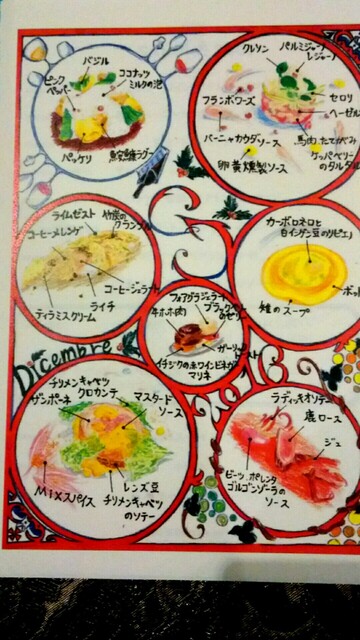 バジル
ピンク
ペッパー
ココナッツ
ミルクの泡
パッケリ
魚介ラグー
クレソン
パルミジャーノ
レジャーノ
フランボワーズ
セロリ
ヘーゼル
バーニャカウダソース
馬肉とたてがみ
ケッパーベリーの
タルタル
卵黄燻製ソース
ライムゼスト
竹炭の
クランブル
コーヒーメレンゲ
コーヒージェラート
ライチ
ティラミスクリーム
カーボロネロと
白インゲン豆のリピエノ
雉のスープ
フォアグラジェラート
牛ホホ肉
ガーリック
イチジクの赤ワインビネガー
マリネ
Dicembre
2016
チリメンキャベツ
クロカンテ
ザンポーネ
マスタード
ソース
MIXスパイス
レンズ豆
チリメンキャベツ
のソテー
ラディッキオソテー
鹿ロース
ジュ
ビーツ ポレンタ
ゴルゴンゾーラの
ソース